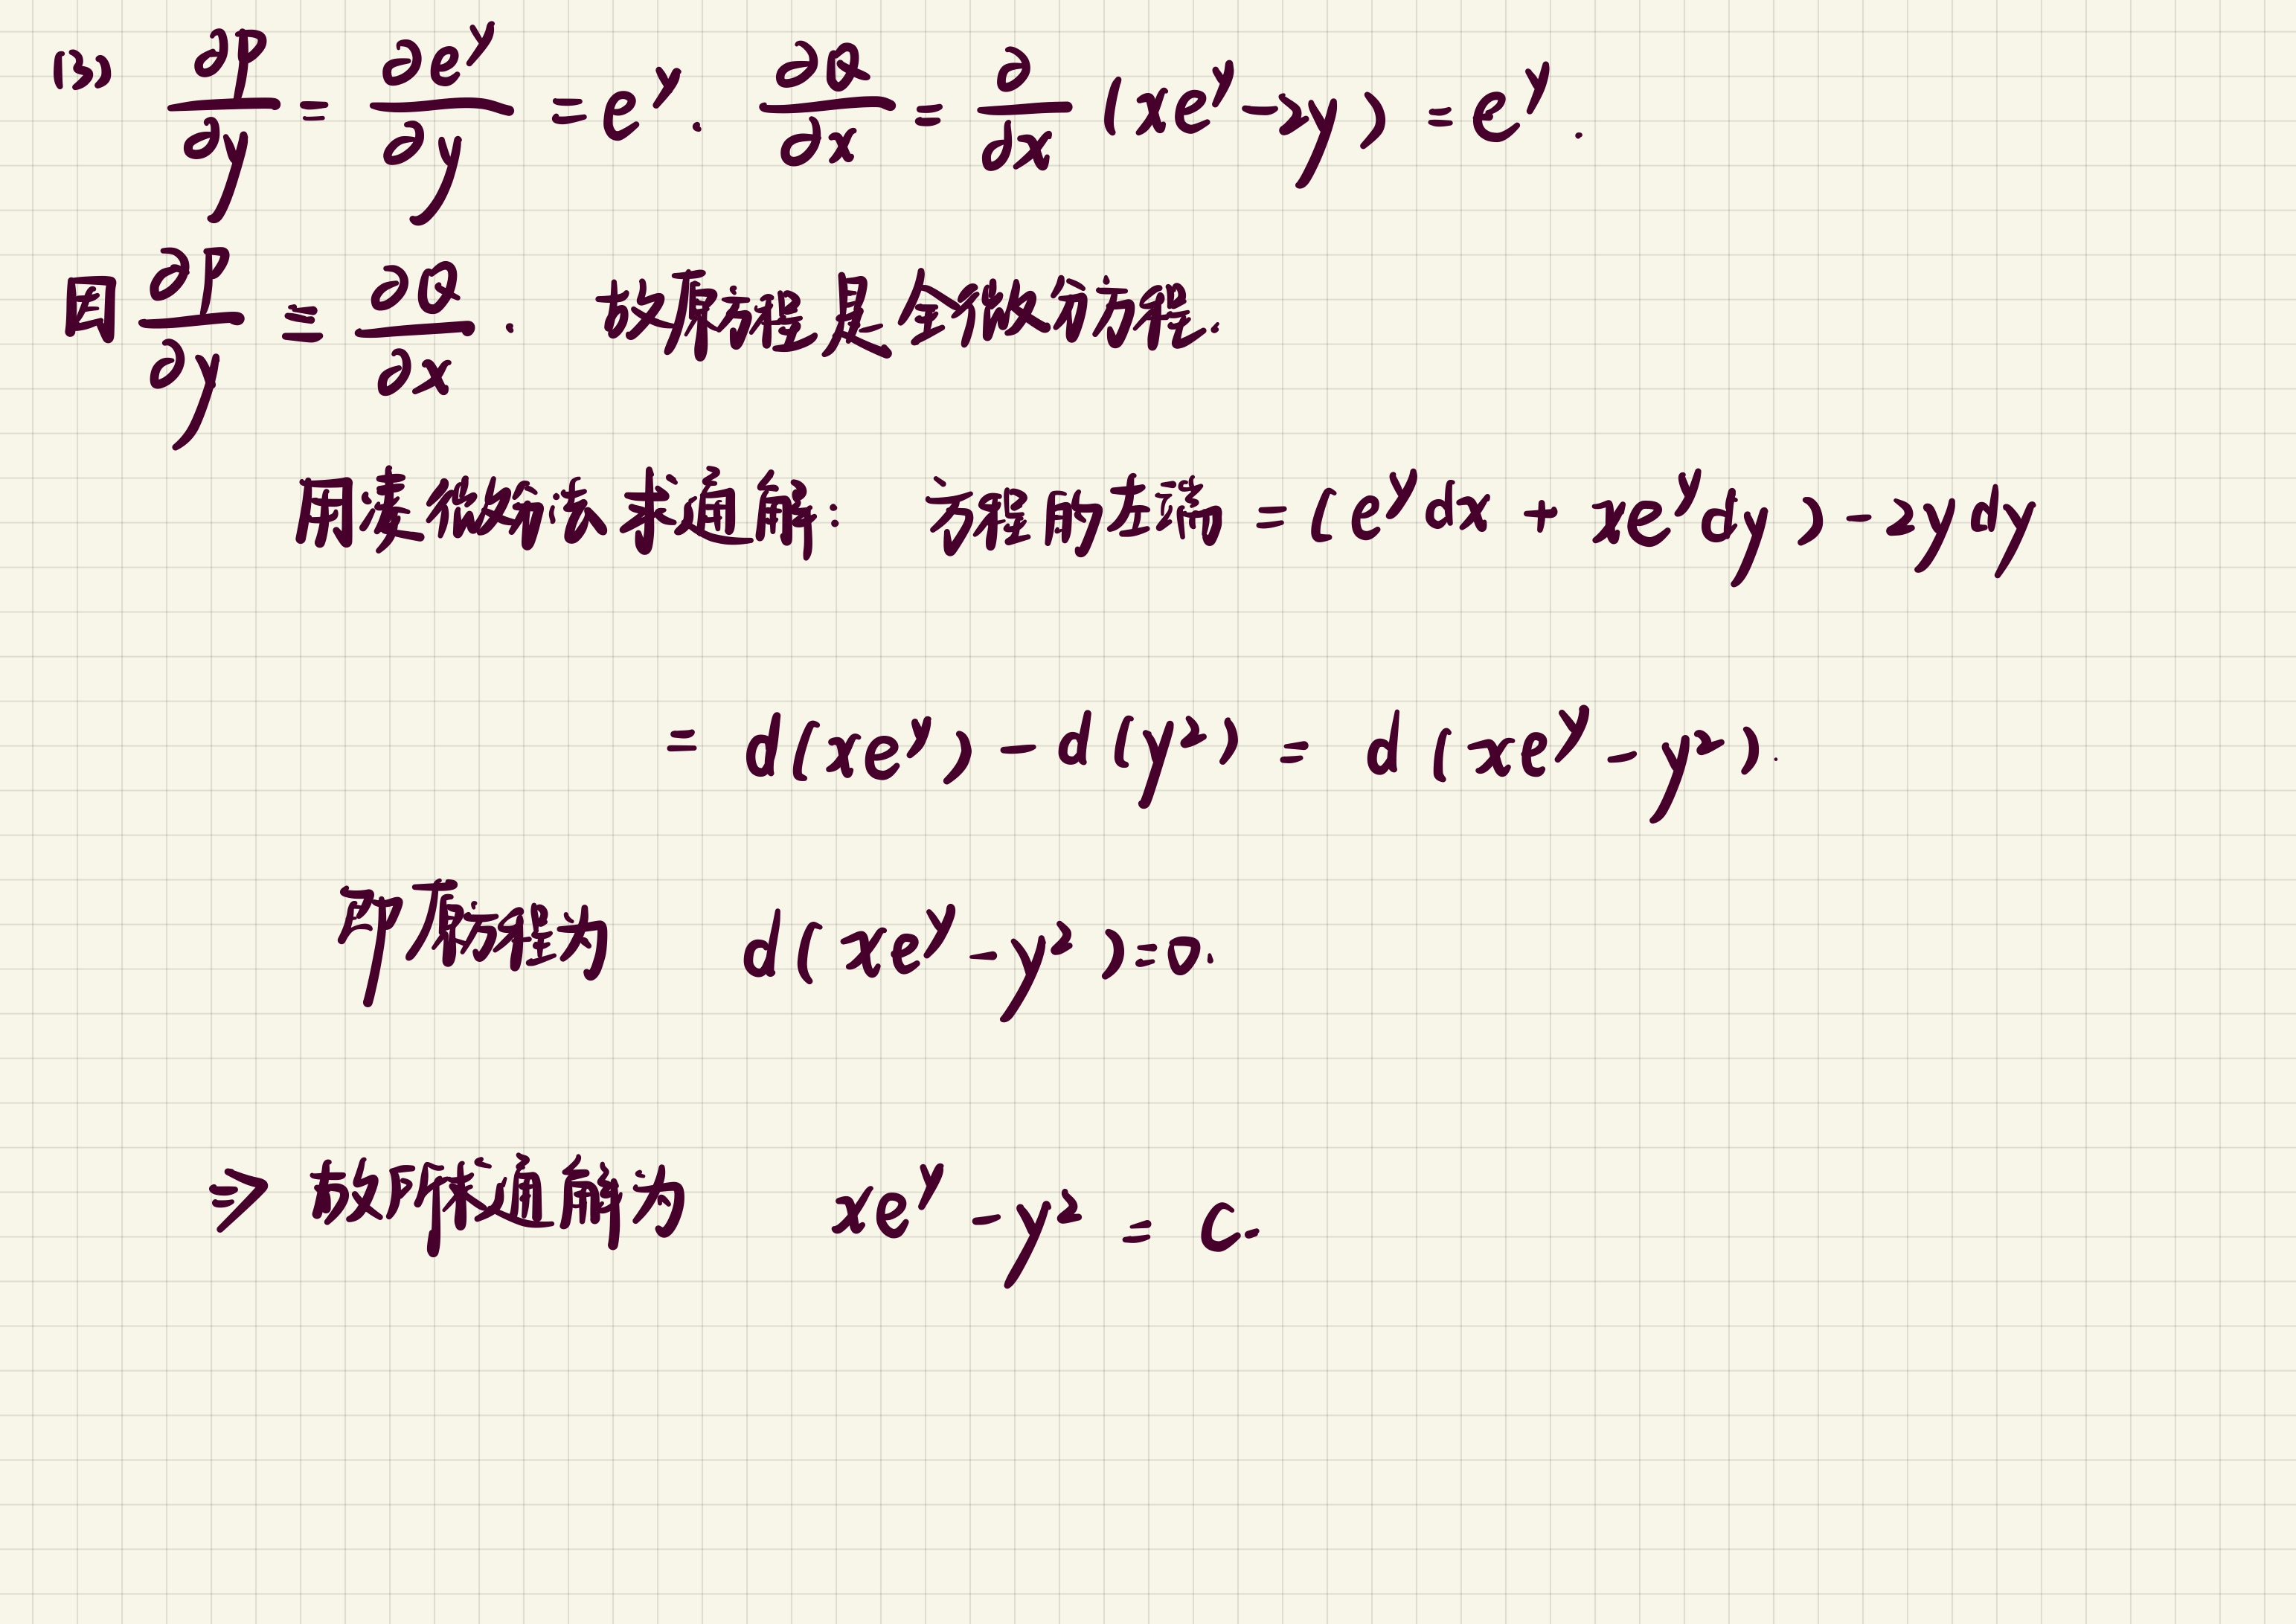 (3) ∂P/∂y = ∂e^y/∂y = e^y. ∂Q/∂x = ∂/∂x (xe^y-2y) = e^y.
因 ∂P/∂y ≡ ∂Q/∂x. 故原方程是全微分方程.
用凑微分法求通解: 方程的左端 = (e^y dx + xe^y dy) - 2y dy
= d(xe^y) - d(y²) = d(xe^y - y²).
即原方程为 d(xe^y - y²)=0.
⇒ 故所求通解为 xe^y - y² = C.